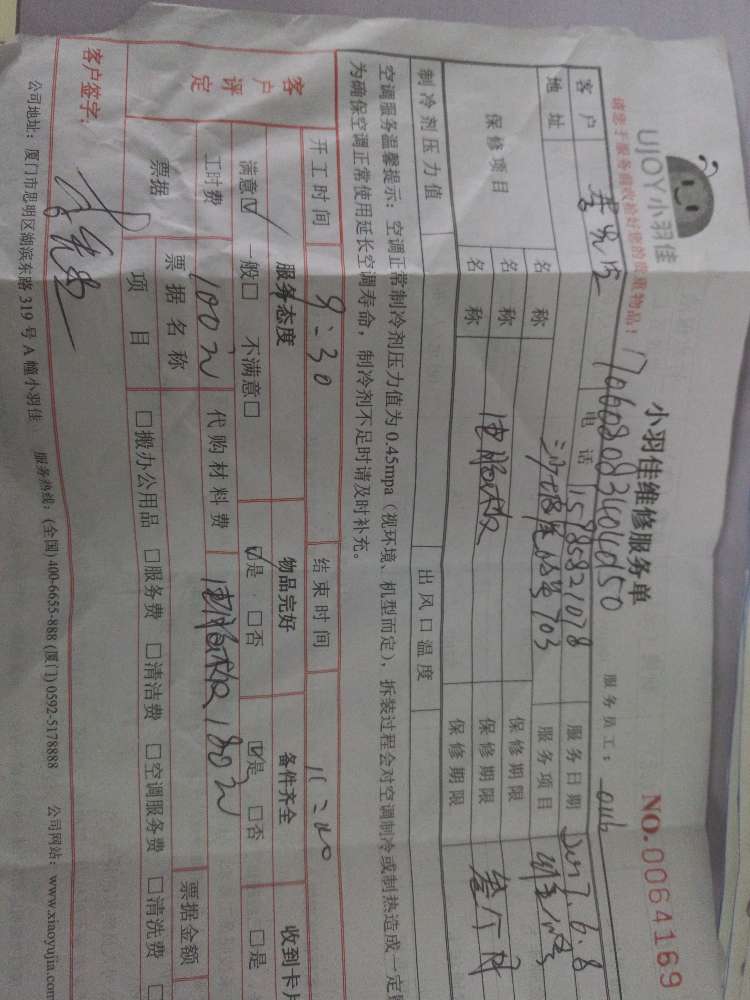 UJOY小羽佳
小羽佳维修服务单
NO.0064169
请您于服务前收捡好您的贵重物品!
服务员工:
客户 电话 15985821078 服务日期 2017.6.8
地址 703 服务项目
保修项目 名称 保修期限
名称 电脑板 保修期限 叁个月
名称 保修期限
制冷剂压力值 出风口温度
空调服务温馨提示:空调正常制冷剂压力值为0.45mpa(视环境、机型而定),拆装过程会对空调制冷或制热造成一定
为确保空调正常使用延长空调寿命,制冷剂不足时请及时补充。
开工时间 9:30 结束时间
客户评定 服务态度 物品完好 备件齐全 收到卡片
满意☑ 一般□ 不满意□ ☑是 □否 ☑是 □否 □是
工时费 100元 代购材料费 电脑板180元
票据 票据名称 票据金额
项目 □搬办公用品 □服务费 □清洁费 □空调服务费 □清洗费 □
客户签字:
公司地址:厦门市思明区湖滨东路319号A幢小羽佳 服务热线:(全国)400-6655-888 (厦门)0592-5178888 公司网站:www.xiaoyujia.com